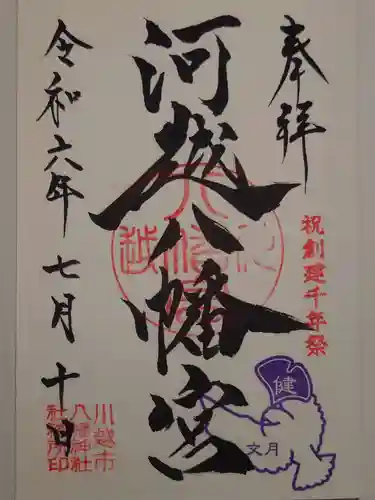 奉拝
祝創建千年祭
河越八幡宮
令和六年七月十日
川越市
八幡神社
社務所印
健
文月